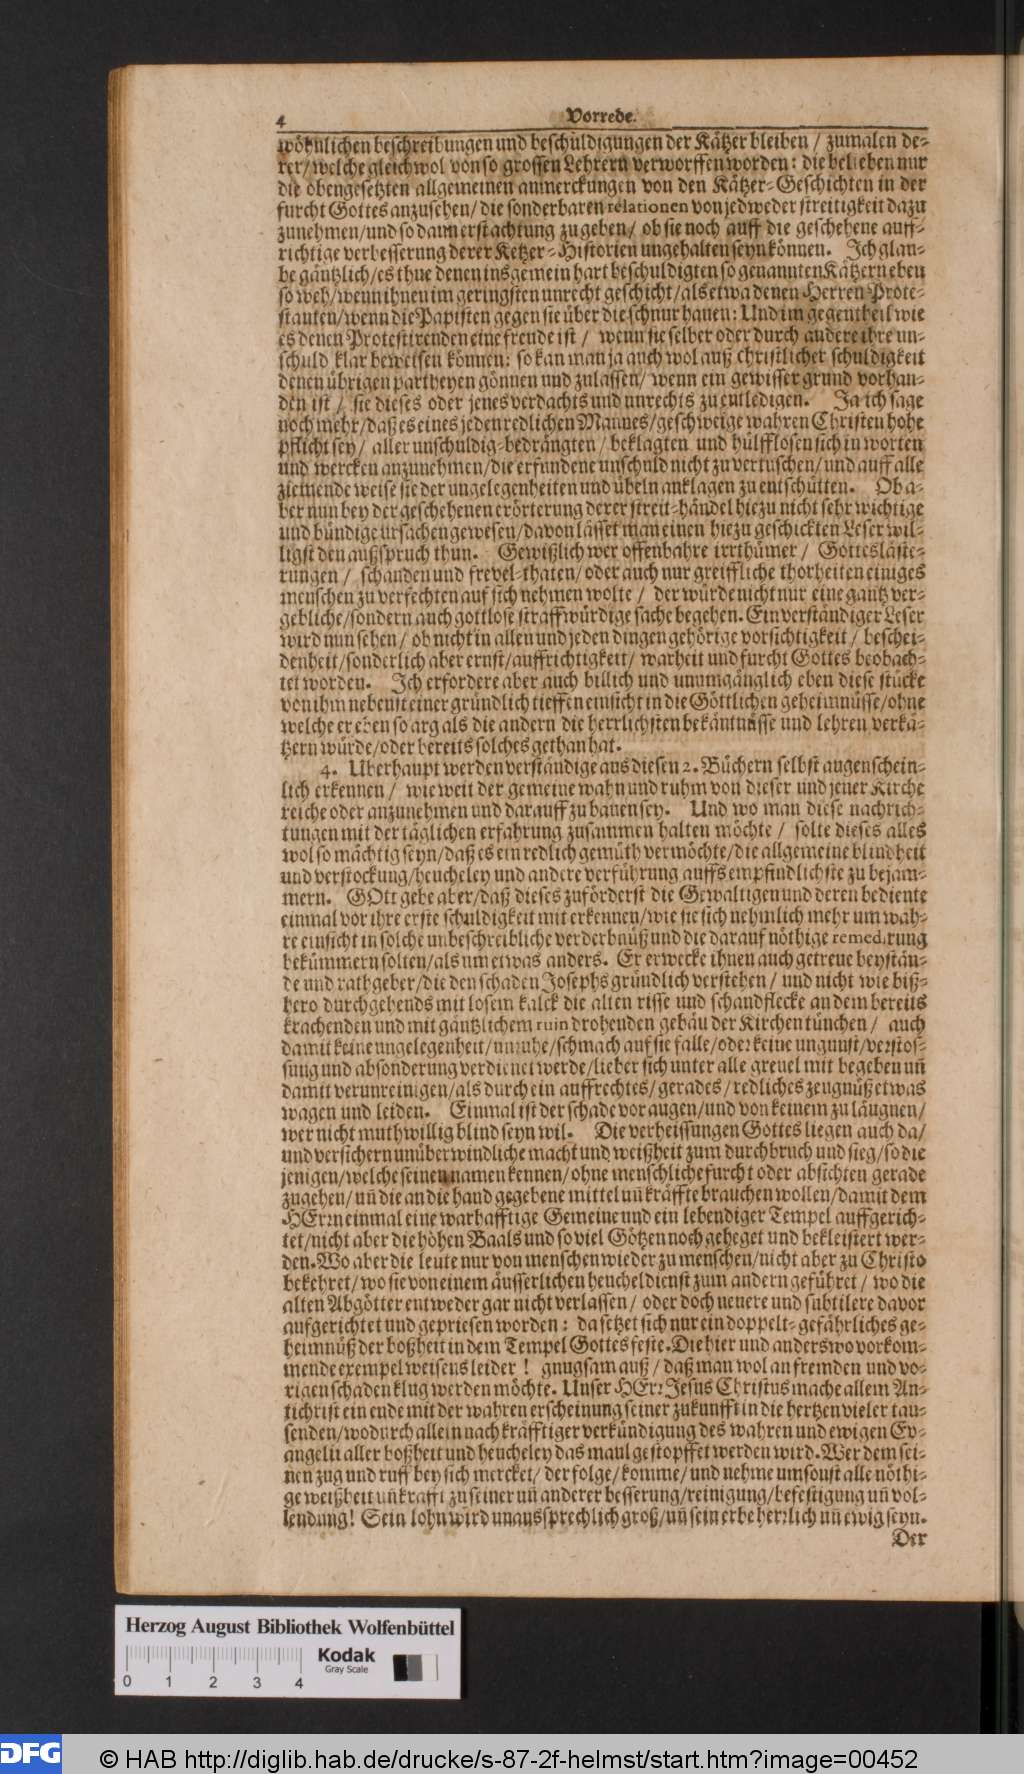 4 Vorrede.
wöhnlichen beschreibungen und beschuldigungen der Kätzer bleiben / zumalen de-
rer/welche gleichwol von so grossen Lehrern verworffen worden: die belieben nur
die obengesetzten allgemeinen anmerckungen von den Kätzer-Geschichten in der
furcht Gottes anzusehen/die sonderbaren relationen von jedweder streitigkeit dazu
zunehmen/und so dann erst achtung zu geben/ ob sie noch auff die geschehene auff-
richtige verbesserung derer Ketzer-Historien ungehalten seyn können. Ich glau-
be gäntzlich/es thue denen insgemein hart beschuldigten so genannten Kätzern eben
so weh/wenn ihnen im geringsten unrecht geschicht/als etwa denen Herren Prote-
stanten/wenn die Papisten gegen sie über die schnur hauen: Und im gegentheil wie
es denen Protestirenden eine freude ist / wenn sie selber oder durch andere ihre un-
schuld klar beweisen können: so kan man ja auch wol auß christlicher schuldigkeit
denen übrigen partheyen gönnen und zulassen/ wenn ein gewisser grund vorhan-
den ist / sie dieses oder jenes verdachts und unrechts zu entledigen. Ja ich sage
noch mehr/daß es eines jeden redlichen Mannes/geschweige wahren Christen hohe
pflicht sey/ aller unschuldig-bedrängten/ beklagten und hülfflosen sich in worten
und wercken anzunehmen/die erfundene unschuld nicht zu vertuschen/und auff alle
ziemende weise sie der ungelegenheiten und übeln anklagen zu entschütten. Ob a-
ber nun bey der geschehenen erörterung derer streit-händel hiezu nicht sehr wichtige
und bündige ursachen gewesen/davon lässet man einen hiezu geschickten Leser wil-
ligst den außspruch thun. Gewißlich wer offenbahre irrthümer / Gotteslä­ste-
rungen / schanden und frevel-thaten/oder auch nur greiffliche thorheiten einiges
menschen zu verfechten auf sich nehmen wolte / der würde nicht nur eine gantz ver-
gebliche/sondern auch gottlose straffwürdige sache begehen. Ein verständiger Leser
wird nun sehen/ ob nicht in allen und jeden dingen gehörige vorsichtigkeit/ beschei-
denheit/sonderlich aber ernst/auffrichtigkeit/ warheit und furcht Gottes beobach-
tet worden. Ich erfordere aber auch billich und unumgänglich eben diese stücke
von ihm nebenst einer gründlich tieffen einsicht in die Göttlichen geheimnüsse/ohne
welche er eben so arg als die andern die herrlichsten bekäntnüsse und lehren verkä-
tzern würde/oder bereits solches gethan hat.
4. Uberhaupt werden verständige aus diesen 2. Büchern selbst augenschein-
lich erkennen / wie weit der gemeine wahn und ruhm von dieser und jener Kirche
reiche oder anzunehmen und darauff zu bauen sey. Und wo man diese nachrich-
tungen mit der täglichen erfahrung zusammen halten möchte / solte dieses alles
wol so mächtig seyn/daß es ein redlich gemüth vermöchte/die allgemeine blindheit
und verstockung/heucheley und andere verführung auffs empfindlichste zu bejam-
mern. GOtt gebe aber/daß dieses zuförderst die Gewaltigen und deren bediente
einmal vor ihre erste schuldigkeit mit erkennen/wie sie sich nehmlich mehr um wah-
re einsicht in solche unbeschreibliche verderbnüß und die darauf nöthige remedirung
bekümmern solten/als um etwas anders. Er erwecke ihnen auch getreue beystän-
de und rathgeber/die den schaden Josephs gründlich verstehen/ und nicht wie biß-
hero durchgehends mit losem kalck die alten risse und schandflecke an dem bereits
krachenden und mit gäntzlichem ruin drohenden gebäu der Kirchen tünchen/ auch
damit keine ungelegenheit/unruhe/schmach auf sie falle/oder keine ungunst/verstos-
sung und absonderung verdienet werde/lieber sich unter alle greuel mit begeben uñ
damit verunreinigen/als durch ein auffrechtes/gerades/redliches zeugnüß etwas
wagen und leiden. Einmal ist der schade vor augen/und von keinem zu läugnen/
wer nicht muthwillig blind seyn wil. Die verheissungen Gottes liegen auch da/
und versichern unüberwindliche macht und weißheit zum durchbruch und sieg/so die
jenigen/welche seinen namen kennen/ohne menschliche furcht oder absichten gerade
zugehen/uñ die an die hand gegebene mittel uñ kräffte brauchen wollen/damit dem
HErrn einmal eine warhafftige Gemeine und ein lebendiger Tempel auffgerich-
tet/nicht aber die höhen Baals und so viel Götzen noch geheget und bekleistert wer-
den. Wo aber die leute nur von menschen wieder zu menschen/nicht aber zu Christo
bekehret/wo sie von einem äusserlichen heucheldienst zum andern geführet/ wo die
alten Abgötter entweder gar nicht verlassen/ oder doch neuere und subtilere davor
aufgerichtet und gepriesen worden: da setzet sich nur ein doppelt-gefährliches ge-
heimnüß der boßheit in dem Tempel Gottes feste. Die hier und anderswo vorkom-
mende exempel weisens leider! gnugsam auß/daß man wol an fremden und vo-
rigen schaden klug werden möchte. Unser HErr Jesus Christus mache allem An-
tichrist ein ende mit der wahren erscheinung seiner zukunfft in die hertzen vieler tau-
senden/wodurch allein nach kräfftiger verkündigung des wahren und ewigen Ev-
angelii aller boßheit und heucheley das maul gestopffet werden wird. Wer dem sei-
nen zug und ruff bey sich mercket/ der folge/komme/und nehme umsonst alle nöthi-
ge weißheit uñ krafft zu seiner uñ anderer besserung/reinigung/befestigung uñ vol-
lendung! Sein lohn wird unaussprechlich groß/uñ sein erbe herrlich uñ ewig seyn.
Der
Herzog August Bibliothek Wolfenbüttel
Kodak
Gray Scale
0 1 2 3 4
DFG © HAB http://diglib.hab.de/drucke/s-87-2f-helmst/start.htm?image=00452